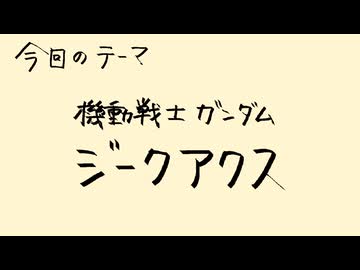 今回のテーマ
機動戦士ガンダム
ジークアクス